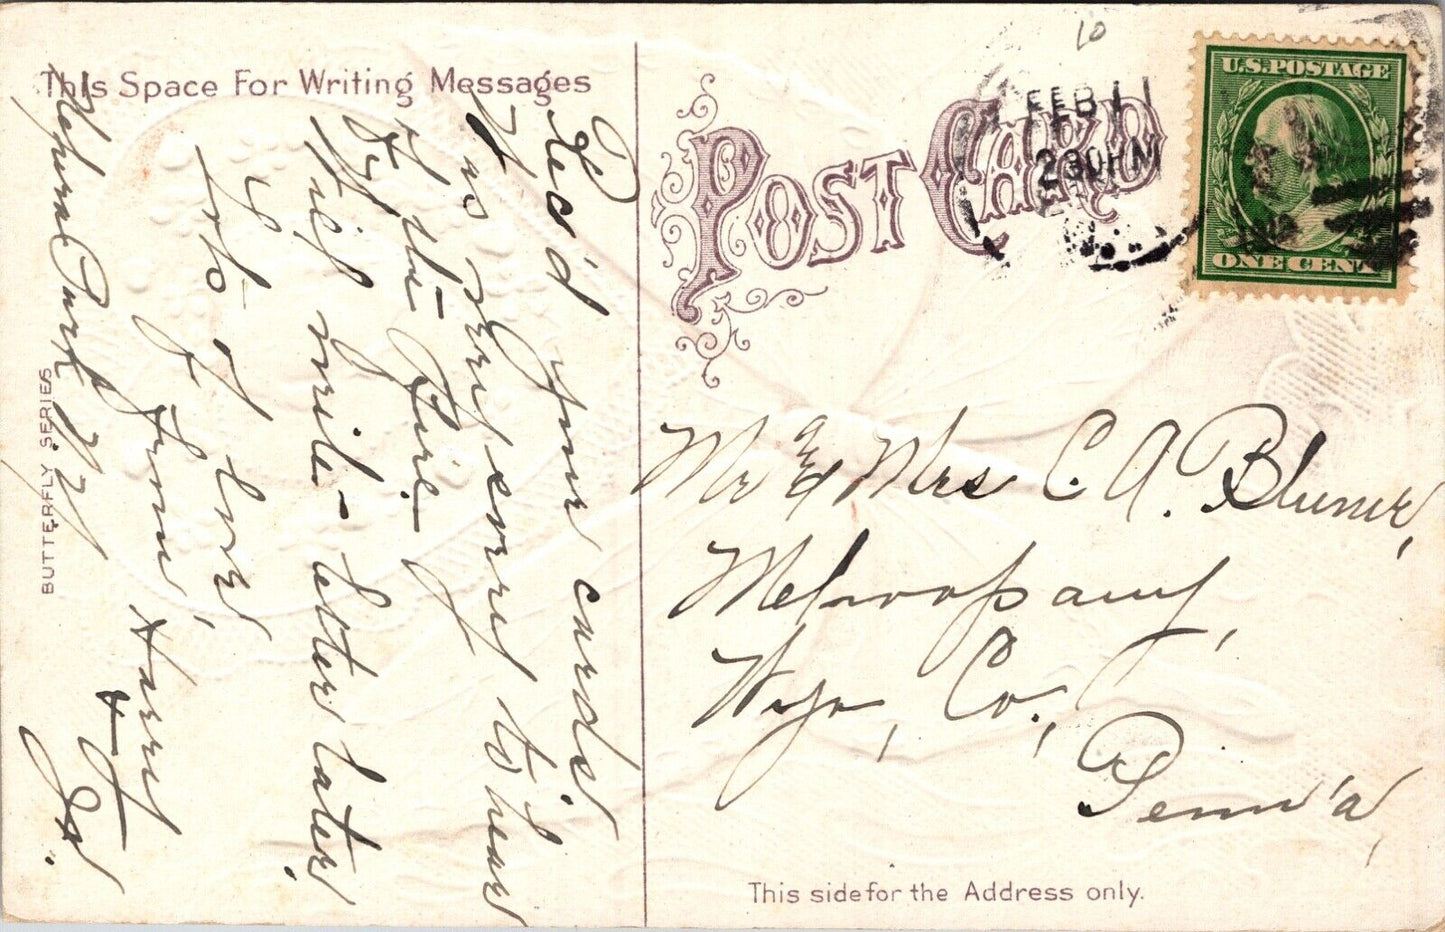 This Space For Writing Messages
Rec'd your cards
& was very sorry to hear
of the Fire
Will write letters later
Lots of Love
From,
Harry
& Ja.
BUTTERFLY SERIES
POST CARD
10
FEB 11
230 PM
U.S. POSTAGE
ONE CENT
Mr & Mrs C. A. Blumer,
Mehoopany,
Wyo, Co.,
Penn'a,
This side for the Address only.